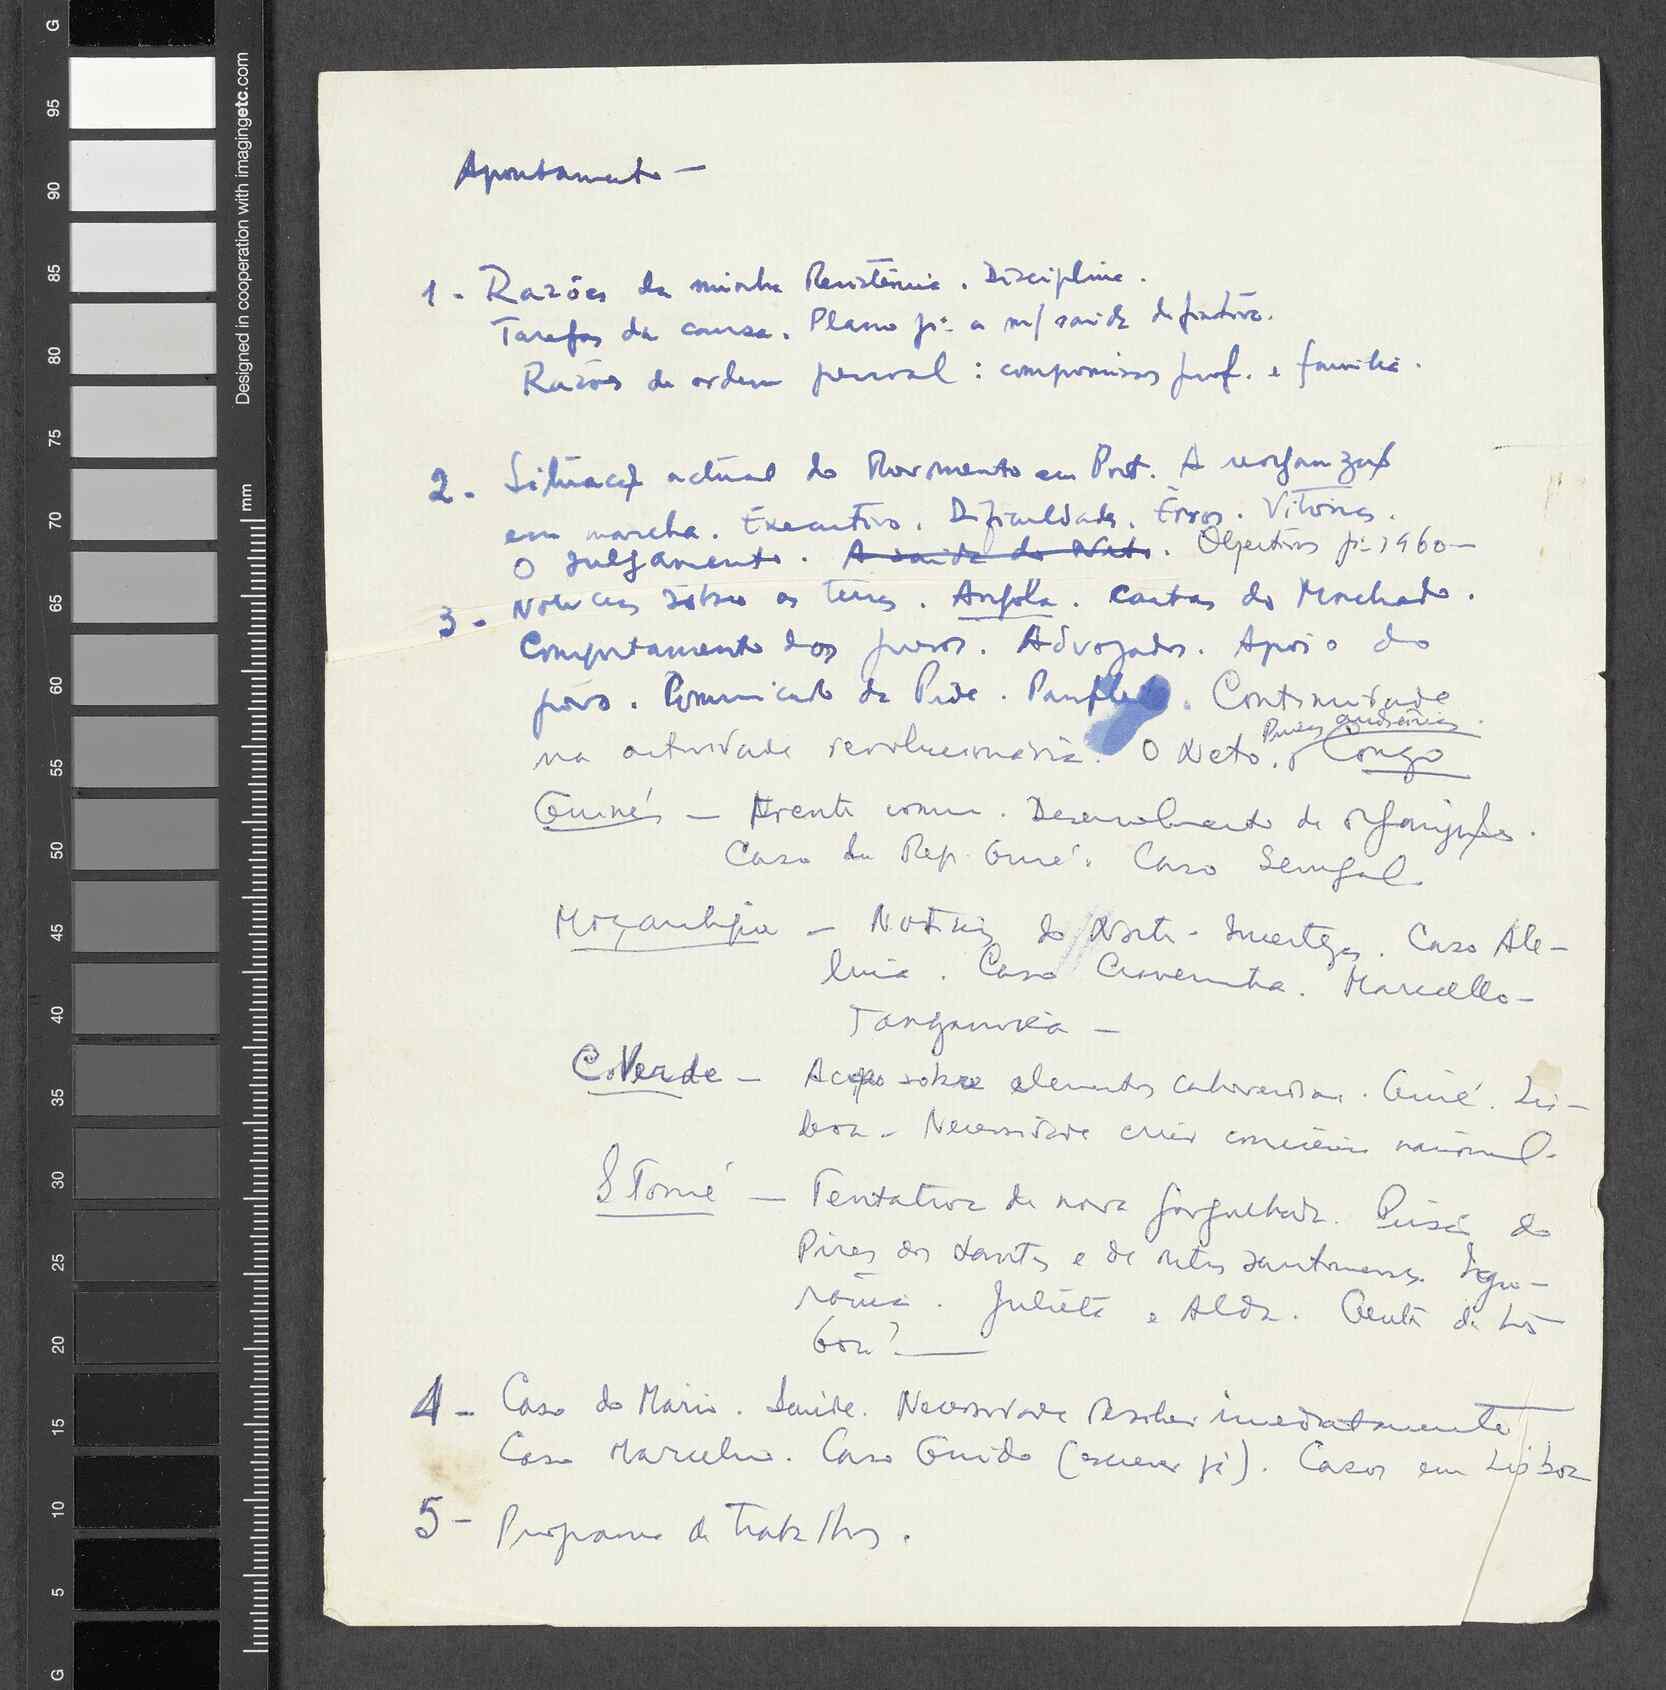 Apontamento —
1 - Razões da minha Resistência. Disciplina.
Tarefas da causa. Plano pª a m/ saída definitiva.
Razões de ordem pessoal : compromissos prof. e família.
2 - Situação actual do Movimento em Port. A reorganização
em marcha. Executivo. Dificuldades. Êrros. Vitórias.
O Julgamento. A saída do Neto. Objectivos pª 1960 —
3 - Notícias sôbre as terras. Angola. Cartas do Machado.
Comportamento dos presos. Advogados. Apoio do
povo. Comunicado da Pide. Continuidade
na actividade revolucionária. O Neto. o Congo
Guiné — Frente comum. Desenvolvimento da organização.
Caso da Rep. Guiné. Caso Senegal
Moçambique — Notícias do Norte - Incertezas. Caso Ale-
luia. Caso Craveirinha. Marcello -
Tanganica —
C. Verde — Acção sobre elementos caboverdianos. Guiné. Lis-
boa - Necessidade criar consciência nacional.
S Tomé — Tentativa de nova gorgulhada. Prisão do
Pires dos Santos e de outros santomenses. Segu-
rança. Julieta e Alda. Gente de Lis-
boa? —
4 - Caso do Mário. Saúde. Necessidade resolver imediatamente
Caso Marcelino. Caso Guido (escrever já). Casos em Lisboa
5 - Programa de Trabalhos.
G
95
90
85
80
75
70
65
60
55
50
45
40
35
30
25
20
15
10
5
G
mm
Designed in cooperation with imagingetc.com